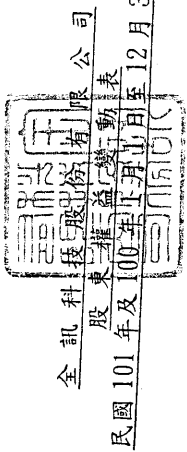 全訊科技股份有限公司
股東權益變動表
民國101年及100年1月1日至12月3